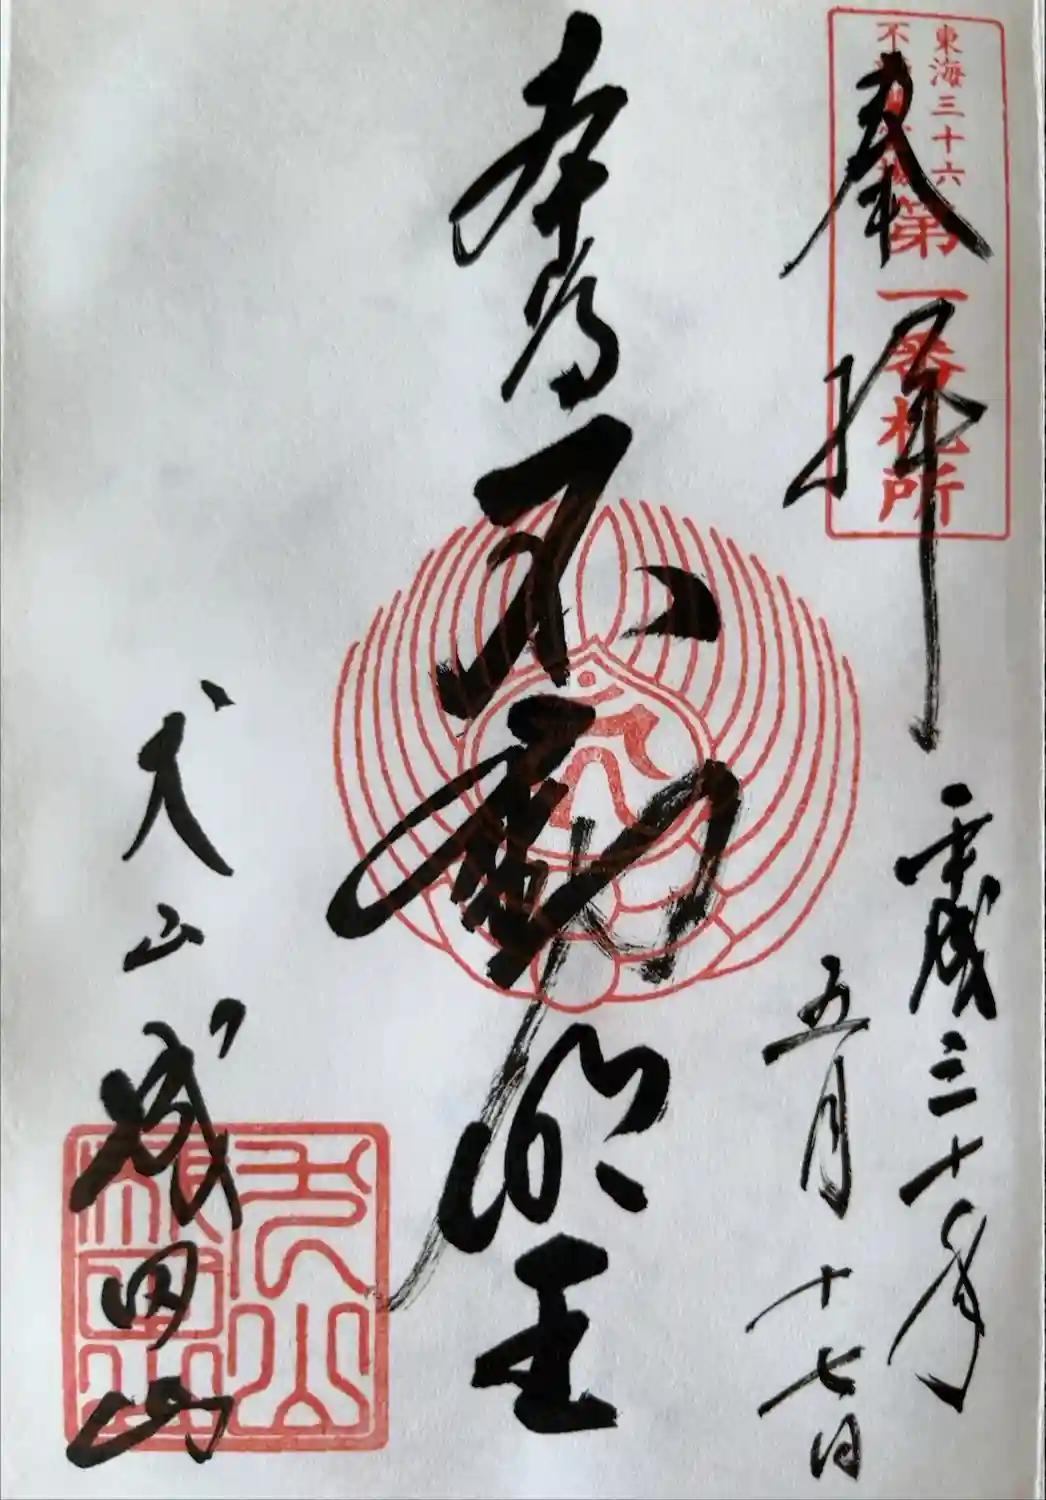 東海三十六
不動尊霊場
第一番札所
奉拝
平成三十年
五月十七日
本尊不動明王
犬山成田山